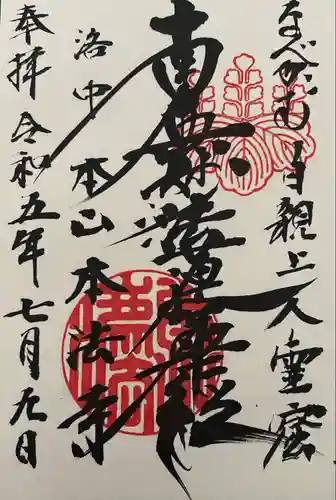 なべかむり日親上人霊窟
南無妙法蓮華経
洛中 本山本法寺
奉拝 令和五年七月九日